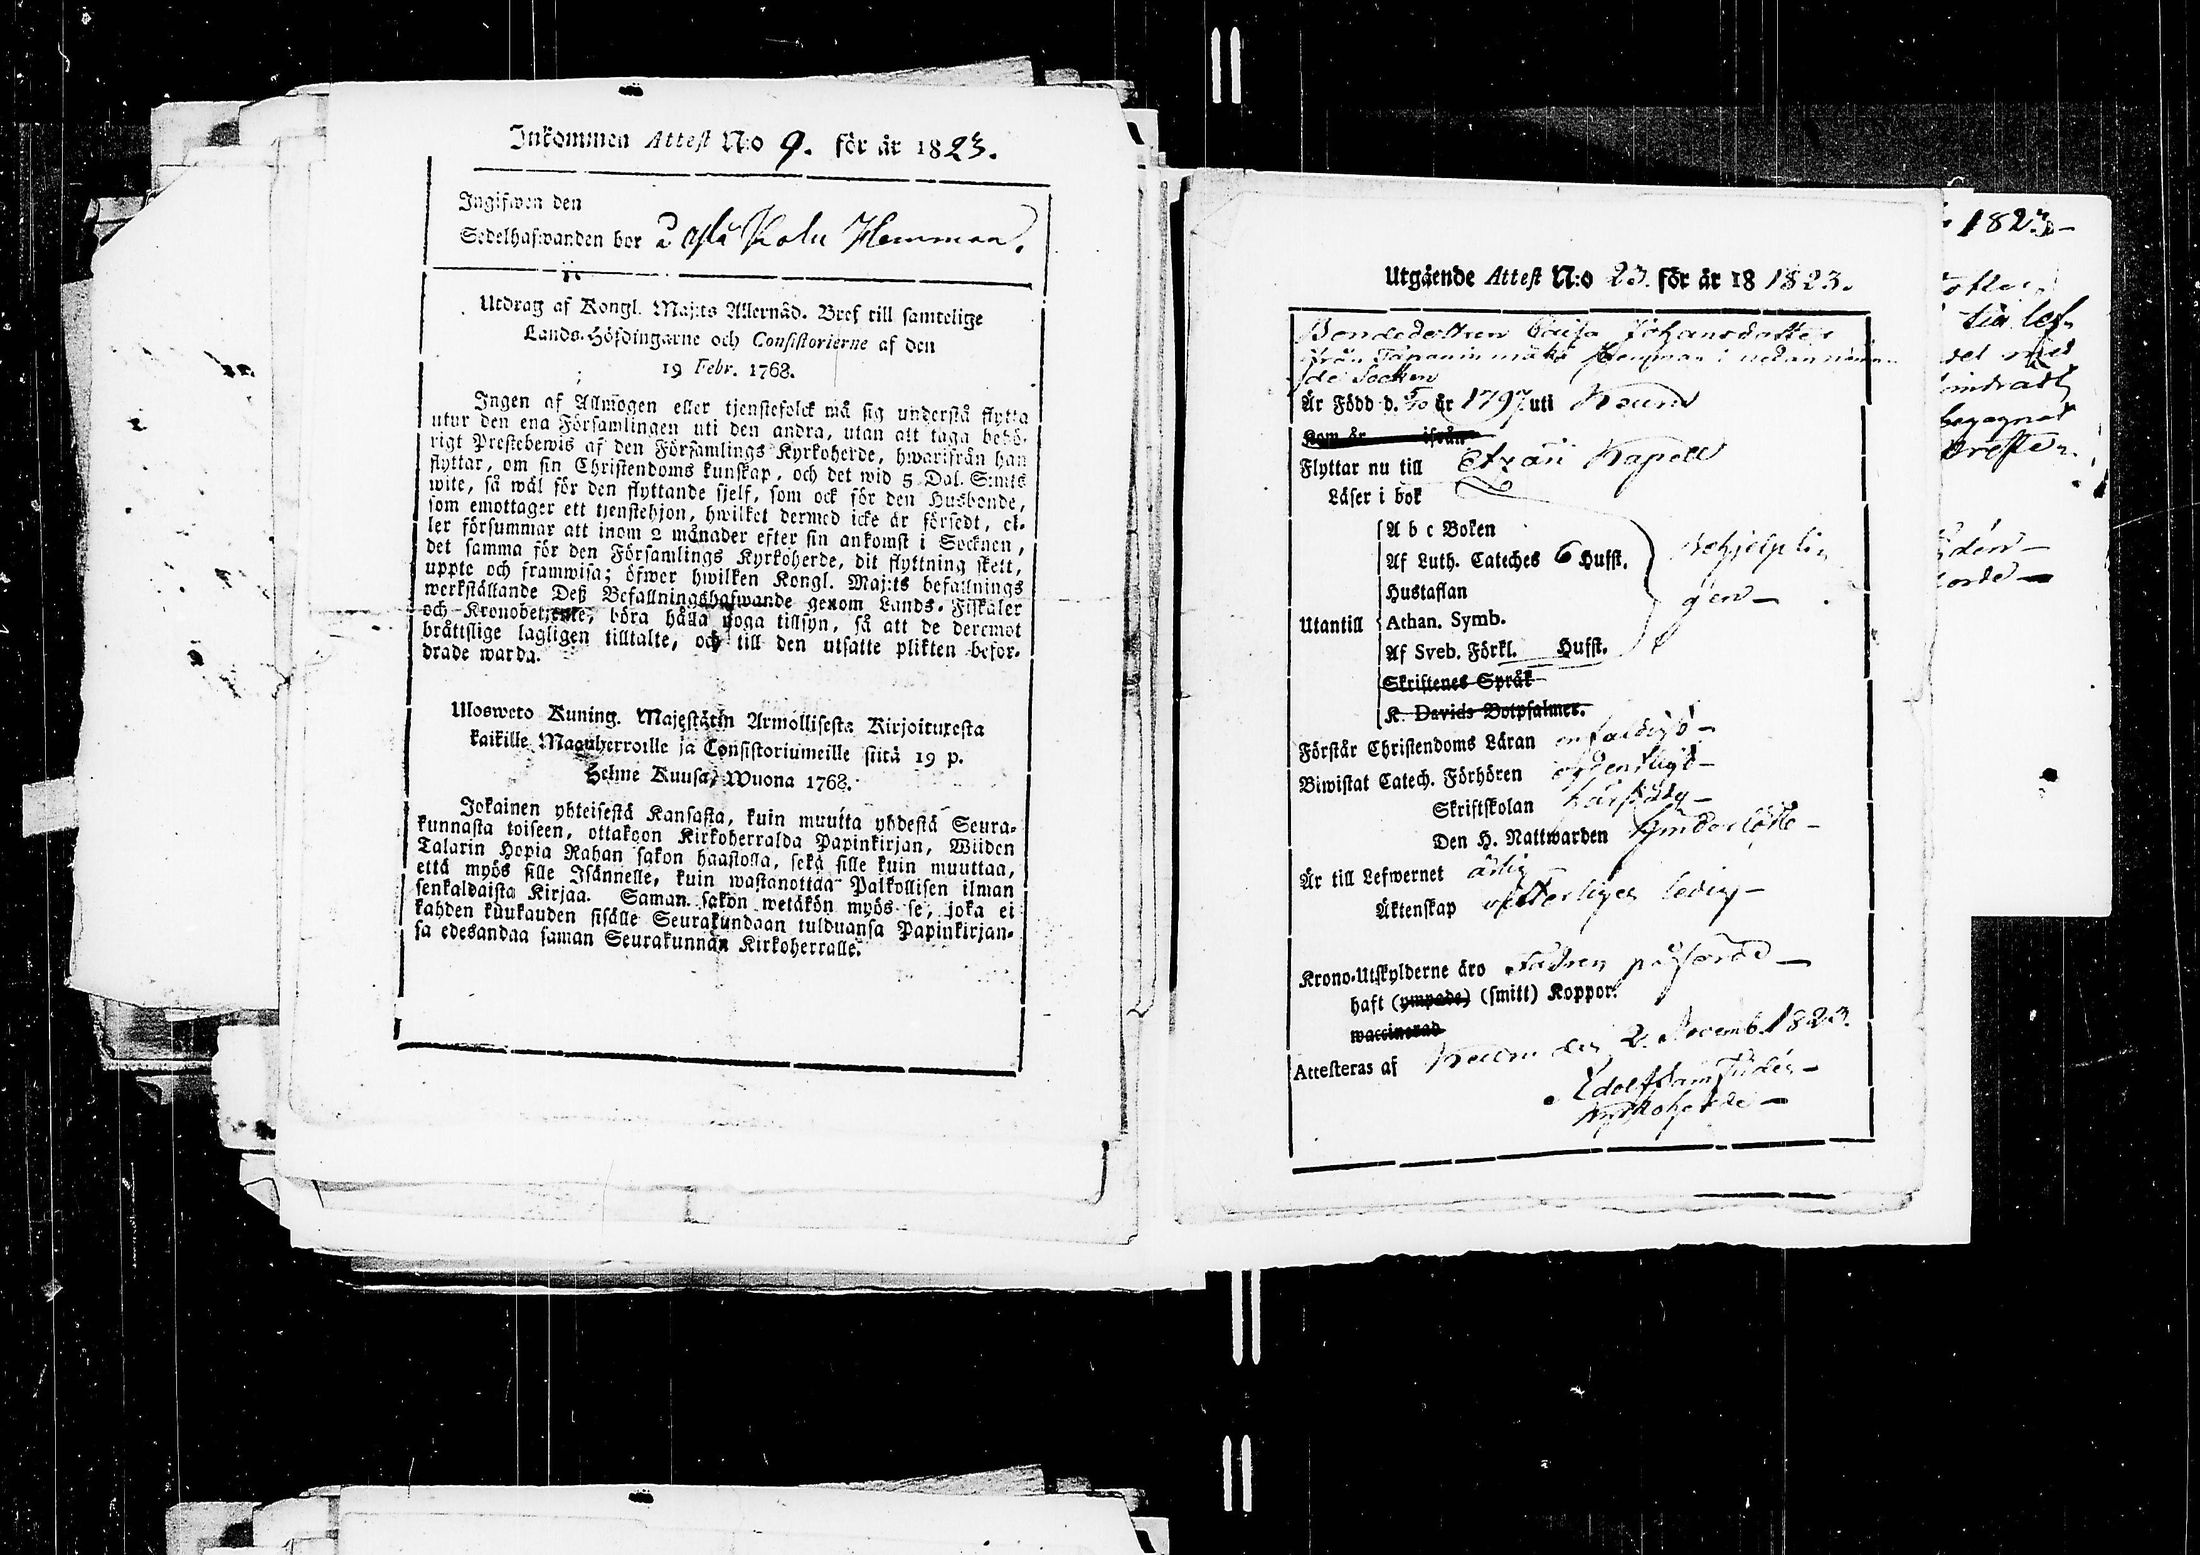 Inkommen Attest N:o 9. för år 1823.
Ingifwen den
Sedelhafwanden bor på Kolu Hemman.
Utdrag af Kongl. Maj:ts Allernåd. Bref till samtelige
Lands-Höfdingarne och Consistorierne af den
19 Febr. 1768.
Ingen af Allmogen eller tjenstefolck må sig understå flytta
utur den ena Församlingen uti den andra, utan att taga behö-
rigt Prestebewis af den Församlings Kyrkoherde, hwarifrån han
flyttar, om sin Christendoms kunskap, och det wid 5 Dal. S:mts
wite, så wäl för den flyttande sjelf, som ock för den Husbonde,
som emottager ett tjenstehjon, hwilket dermed icke är försedt, el-
ler försummar att inom 2 månader efter sin ankomst i Socknen,
det samma för den Församlings Kyrkoherde, dit flyttning skett,
uppte och framwisa; öfwer hwilken Kongl. Maj:ts befallnings
werkställande Deß Befallningshafwande genom Lands-Fiskaler
och Kronobetjente, böra hålla noga tillsyn, så att de deremot
bråttslige lagligen tilltalte, och till den utsatte plikten befor-
drade warda.
Ulosweto Kuning. Majestätin Armollisesta Kirjoituxesta
kaikille Maanherroille ja Consistoriumeille siitä 19 p.
Helme Kuusa, Wuona 1768.
Jokainen yhteisestä Kansasta, kuin muutta yhdestä Seura-
kunnasta toiseen, ottakoon Kirkoherralda Papinkirjan, Wiiden
Talarin Hopia Rahan sakon haastolla, sekä sille kuin muuttaa,
että myös sille Isännelle, kuin wastanottaa Palkollisen ilman
senkaldaista Kirjaa. Saman sakon wetäkön myös se, joka ei
kahden kuukauden sisälle Seurakundaan tulduansa Papinkirjan-
sa edesandaa saman Seurakunnan Kirkoherralle.
Utgående Attest N:o 23. för år 18 1823.
Bondedottren Caisa Johansdotter
ifrån Tapaninmäki Hemman i nedannämn
de Socken
Är Född d. 5/10 år 1797 uti Keuru
Kom år ifrån
Flyttar nu till Etzäri Kapell
Läser i bok
A b c Boken
Af Luth. Cateches 6 Hufst.
Hustaflan
Utantill Athan. Symb.
Af Sveb. Förkl. Hufst.
Skriftenes Språk
K. Davids Botpsalmer.
behjelpli
gen
Förstår Christendoms Läran enfaldigt
Biwistat Catech. Förhören ordentligt
Skriftskolan
Den H. Nattwarden
Är till Lefwernet ärlig
Äktenskap ledig
Krono-Utskylderne äro Fadren påförde
haft (ympade) (smitt) Koppor.
waccinerad
Attesteras af Keuru den 2. Novemb. 1823.
Kyrkoherde
1823